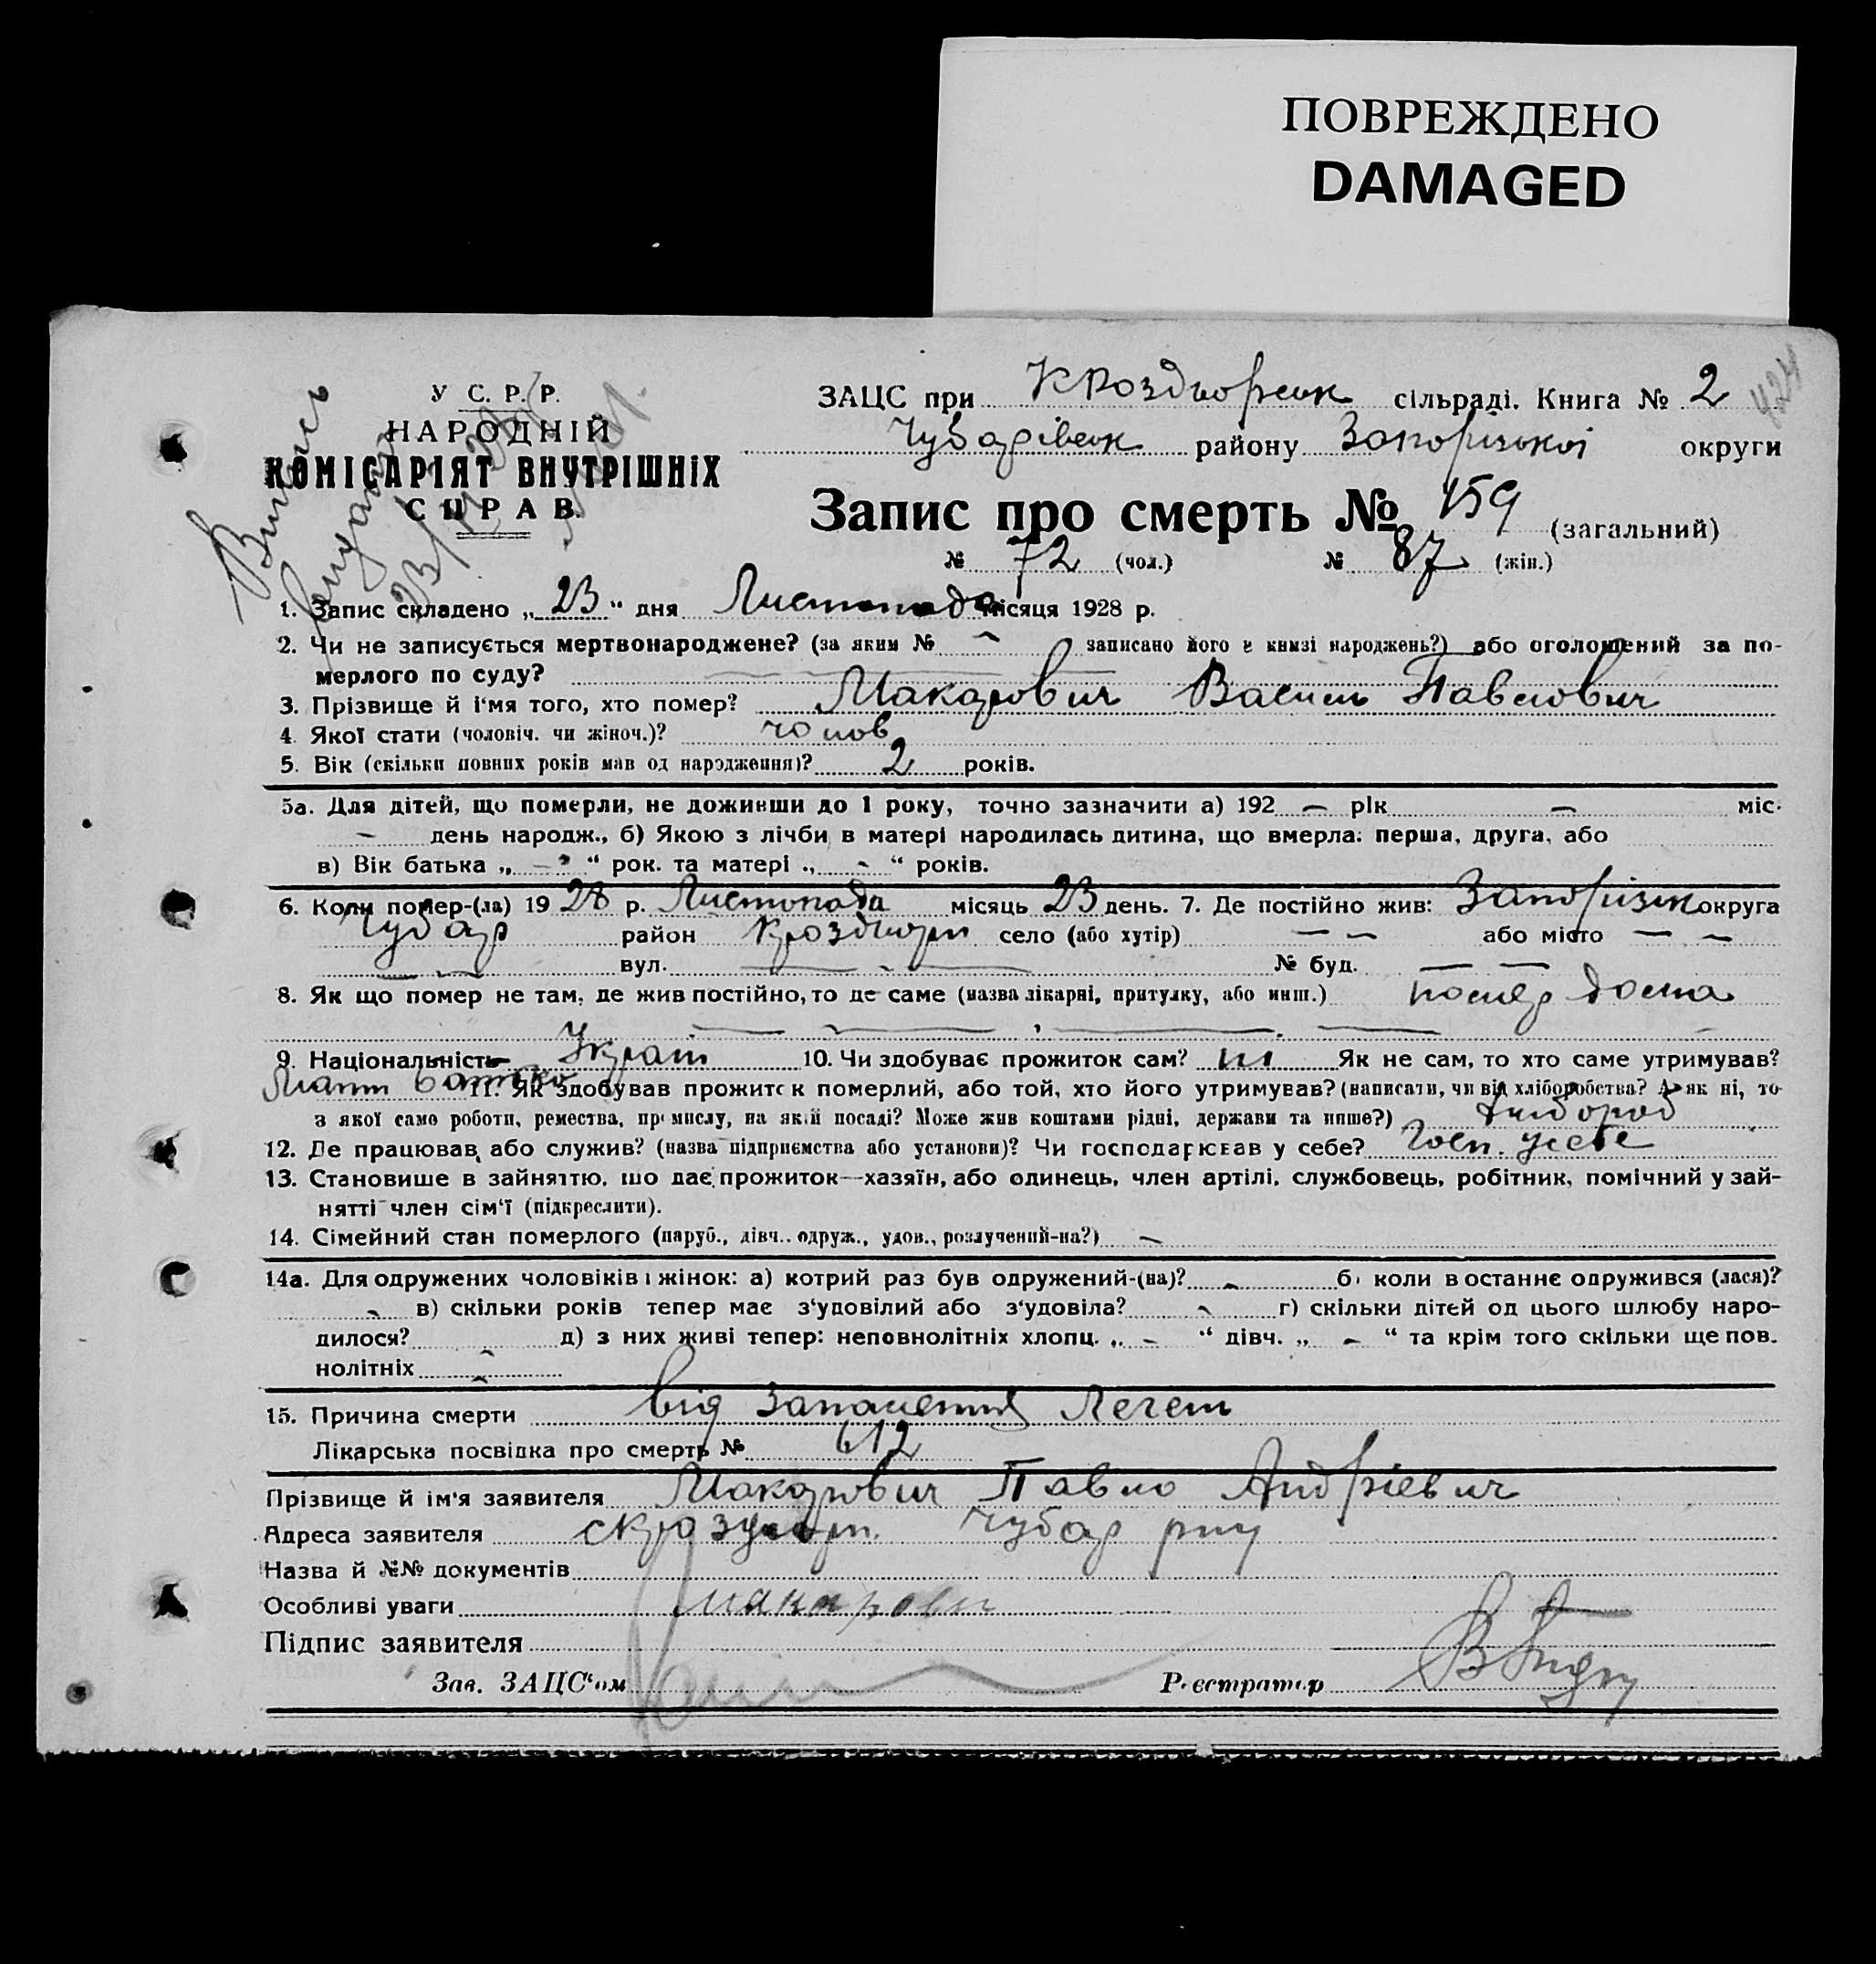 ПОВРЕЖДЕНО
DAMAGED
У С. Р. Р.
НАРОДНІЙ
КОМІСАРІЯТ ВНУТРІШНІХ
СПРАВ.
Випись
ЗАЦС при Кроздворськ сільраді. Книга № 2
Чубарівськ району Запорізької округи
Запис про смерть № 159 (загальний)
№ 72 (чол.) № 87 (жін.)
1. Запис складено „ 23 “ дня Листопада місяця 1928 р.
2. Чи не записується мертвонароджене? (за яким № – записано його в книзі народжень?) або оголошений за по-
мерлого по суду?
3. Прізвище й і‘мя того, хто помер? Макарович Василь Павлович
4. Якої статі (чоловіч. чи жіноч.)? чолов
5. Вік (скільки повних років мав од народження)? 2 років.
5а. Для дітей, що померли, не доживши до 1 року, точно зазначити а) 192 – рік – міс.
– день народж., б) Якою з лічби в матері народилась дитина, що вмерла: перша, друга, або
в) Вік батька „ – “ рок. та матері „ - “ років.
6. Коли помер-(ла) 19 28 р. Листопада місяць 23 день. 7. Де постійно жив: Запорізьк округа
Чубар район Кроздворн село (або хутір) – – або місто – –
вул. № буд. – –
8. Як що помер не там, де жив постійно, то де саме (назва лікарні, притулку, або инш.) помер дома
9. Національність Україн 10. Чи здобуває прожиток сам? ні Як не сам, то хто саме утримував?
Мати батько 11. Як здобував прожиток померлий, або той, хто його утримував? (написати, чи від хліборобства? А як ні, то
з якої само роботи, ремества, промислу, на якій посаді? Може жив коштами рідні, держави та инше?) Хлібороб
12. Де працював, або служив? (назва підприємства або установи)? Чи господарював у себе? Госп. у себе
13. Становише в зайняттю, що дає прожиток—хазяїн, або одинець, член артілі, службовець, робітник, помічний у зай-
нятті член сім‘ї (підкреслити).
14. Сімейний стан померлого (паруб., дівч.. одруж., удов., розлучений-на?) –
14а. Для одружених чоловіків і жінок: а) котрий раз був одружений-(на)? - б) коли в останнє одружився (лася)?
- в) скільки років тепер має з‘удовілий або з‘удовіла? - г) скільки дітей од цього шлюбу наро-
дилося? д) з них живі тепер: неповнолітніх хлопц. „ – “ дівч. „ – “ та крім того скільки ще пов.
нолітніх
15. Причина смерти від запалення Легень
Лікарська посвідка про смерть № 612
Прізвище й ім'я заявителя Макарович Павло Андрієвич
Адреса заявителя Чубар рну
Назва й №№ документів
Особливі уваги
Макарович
Підпис заявителя
Зав. ЗАЦС‘ом Реєстратор